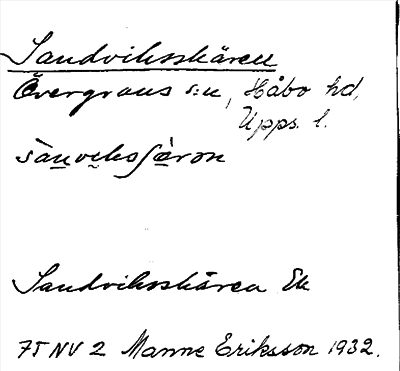 Sandviksskären
Övergrans s:n, Håbo hd,
Upps. l.
sànviksʃä̀ron
Sandviksskären Ek
75 NV 2 Manne Eriksson 1932.